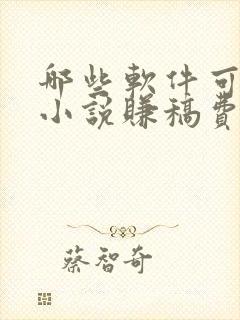 那些軟件可
小說賺稿費
蔡智奇